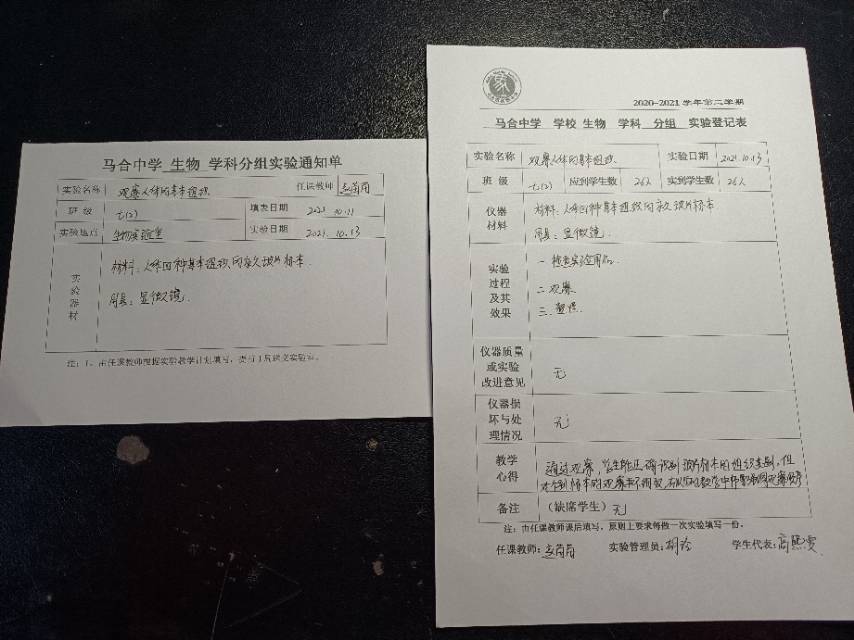 马合中学 生物 学科分组实验通知单
实验名称 观察人体的基本组织 任课教师
班 级 七(2) 填表日期 2021.10.11
实验地点 生物实验室 实验日期 2021.10.13
实验器材
材料:人体四种基本组织的永久玻片标本
用具:显微镜.
注:1、由任课教师根据实验教学计划填写,
2020-2021 学年第二学期
马合中学 学校 生物 学科 分组 实验登记表
实验名称 观察人体的基本组织 实验日期 2021.10.13
班 级 七(2) 应到学生数 26人 实到学生数 26人
仪器材料
材料:人体四种基本组织的永久玻片标本
用具:显微镜.
实验过程及其效果
一 检查实验用品.
二 观察
三. 整理.
仪器质量或实验改进意见 无
仪器损坏与处理情况 无
教学心得
通过观察,学生能正确识别玻片标本的组织类别,但
备注 (缺席学生)无
注:由任课教师课后填写,原则上要求每做一次实验填写一份。
任课教师: 实验管理员:胡 学生代表:高熙雯